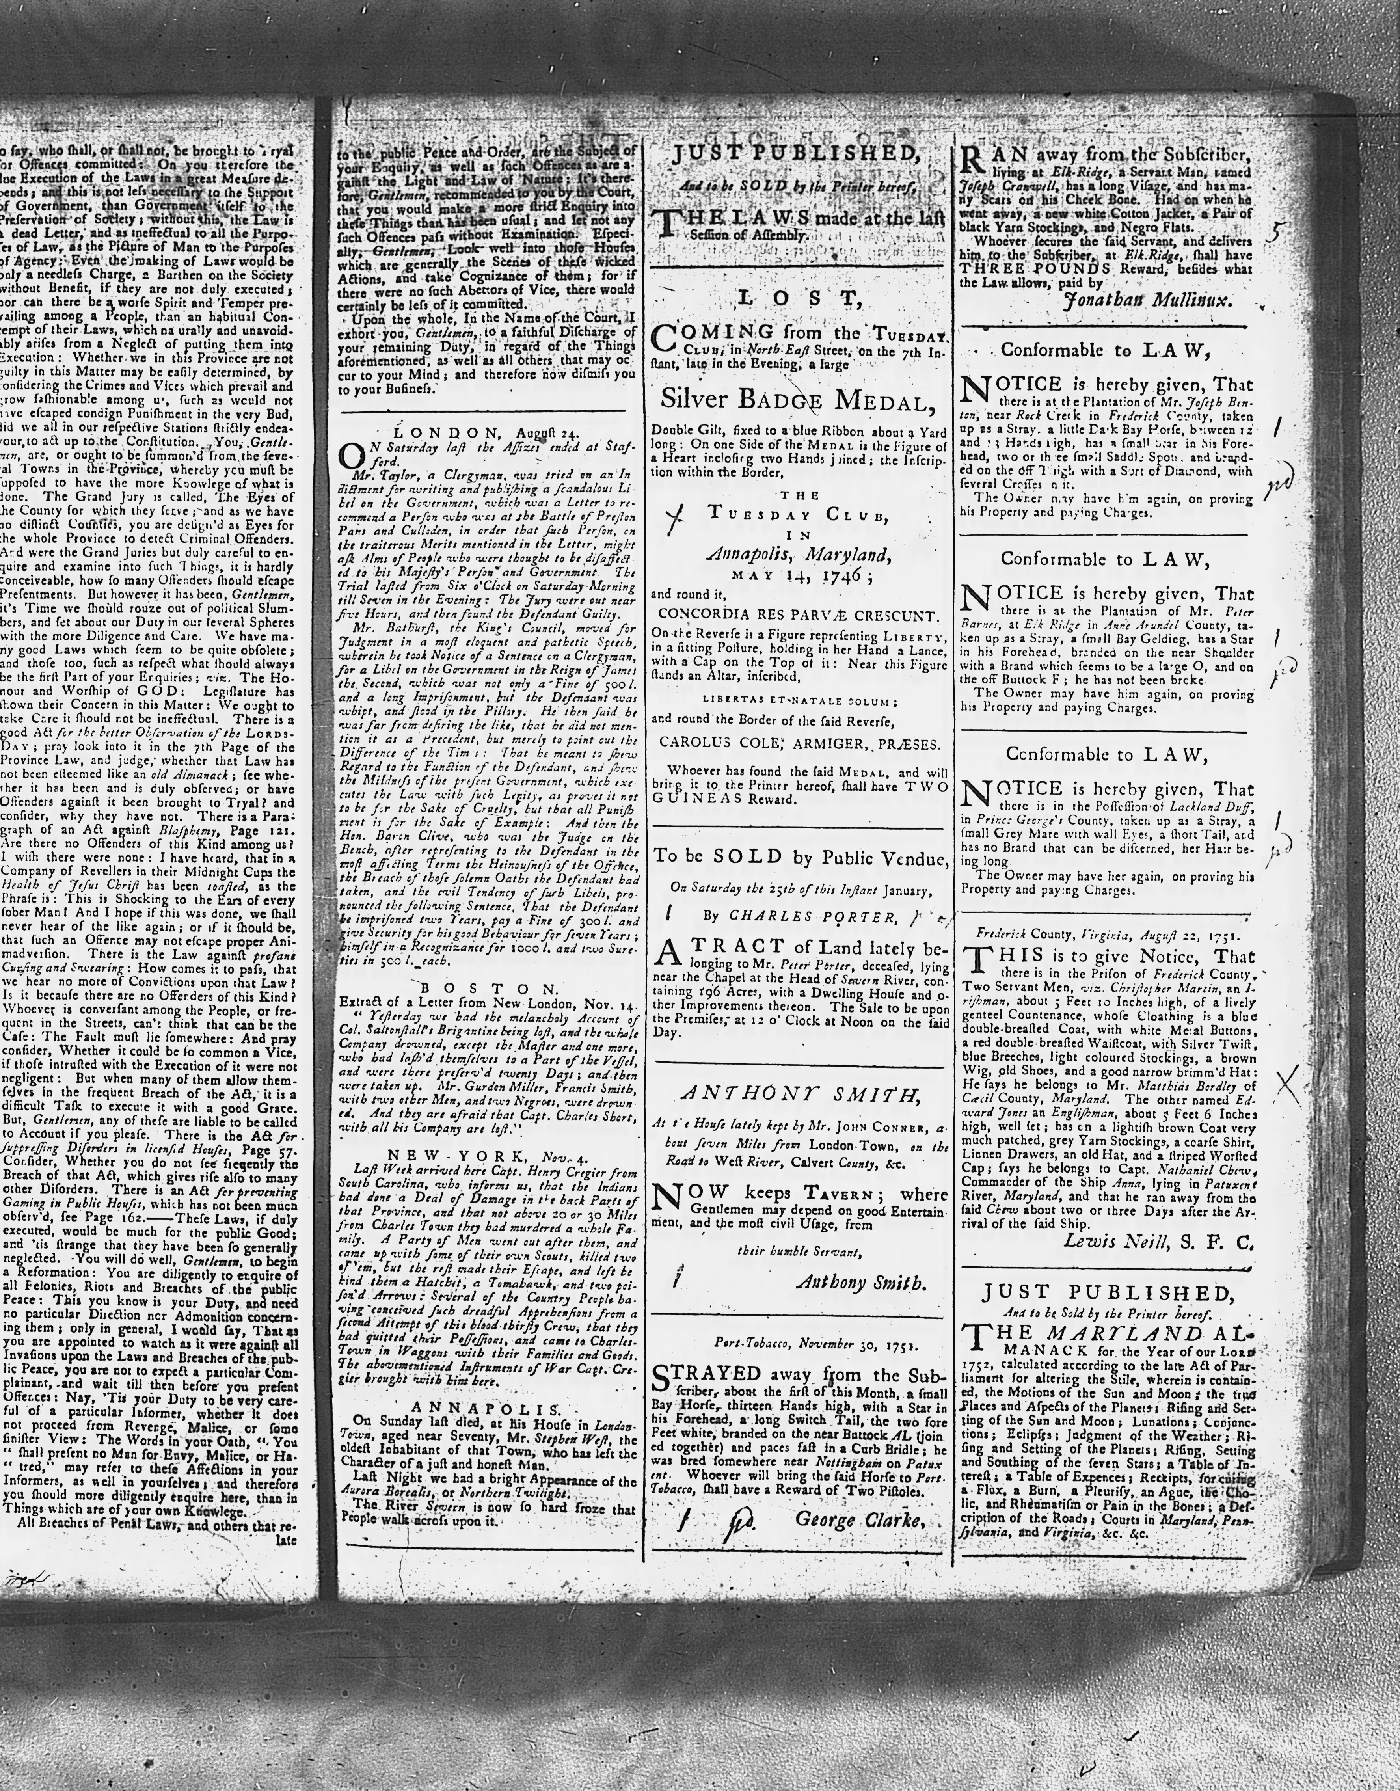 to say, who shall, or shall not, be brought to Tryal
for Offences committed: On you therefore the
due Execution of the Laws in a great Measure de-
pends; and this is not less necessary to the Support
of Government, than Government itself to the
Preservation of Society; without this, the Law is
a dead Letter, and as ineffectual to all the Purpo-
ses of Law, as the Picture of Man to the Purposes
of Agency: Even the making of Laws would be
only a needless Charge, a Burthen on the Society
without Benefit, if they are not duly executed;
nor can there be a worse Spirit and Temper pre-
vailing among a People, than an habitual Con-
tempt of their Laws, which naturally and unavoid-
ably arises from a Neglect of putting them into
Execution: Whether we in this Province are not
guilty in this Matter may be easily determined, by
considering the Crimes and Vices which prevail and
grow fashionable among us, such as would not
have escaped condign Punishment in the very Bud,
did we all in our respective Stations strictly endea-
vour to act up to the Constitution. You, Gentle-
men, are, or ought to be summon'd from the seve-
ral Towns in the Province, whereby you must be
supposed to have the more Knowlege of what is
done. The Grand Jury is called, The Eyes of
the County for which they serve; and as we have
no distinct Counties, you are design'd as Eyes for
the whole Province to detect Criminal Offenders.
And were the Grand Juries but duly careful to en-
quire and examine into such Things, it is hardly
conceiveable, how so many Offenders should escape
Presentments. But however it has been, Gentlemen,
it's Time we should rouze out of political Slum-
bers, and set about our Duty in our several Spheres
with the more Diligence and Care. We have ma-
ny good Laws which seem to be quite obsolete;
and those too, such as respect what should always
be the first Part of your Enquiries; viz. The Ho-
nour and Worship of GOD: Legislature has
shown their Concern in this Matter: We ought to
take Care it should not be ineffectual. There is a
good Act for the better Observation of the LORDS-
DAY; pray look into it in the 7th Page of the
Province Law, and judge, whether that Law has
not been esteemed like an old Almanack; see whe-
ther it has been and is duly observed; or have
Offenders against it been brought to Tryal? and
consider, why they have not. There is a Para-
graph of an Act against Blasphemy, Page 121.
Are there no Offenders of this Kind among us?
I wish there were none: I have heard, that in a
Company of Revellers in their Midnight Cups the
Health of Jesus Christ has been toasted, as the
Phrase is: This is Shocking to the Ears of every
sober Man! And I hope if this was done, we shall
never hear of the like again; or if it should be,
that such an Offence may not escape proper Ani-
madversion. There is the Law against profane
Cursing and Swearing: How comes it to pass, that
we hear no more of Convictions upon that Law?
Is it because there are no Offenders of this Kind?
Whoever is conversant among the People, or fre-
quent in the Streets, can't think that can be the
Case: The Fault must lie somewhere: And pray
consider, Whether it could be so common a Vice,
if those intrusted with the Execution of it were not
negligent: But when many of them allow them-
selves in the frequent Breach of the Act, it is a
difficult Task to execute it with a good Grace.
But, Gentlemen, any of these are liable to be called
to Account if you please. There is the Act for
suppressing Disorders in licensed Houses, Page 57.
Consider, Whether you do not see freqently the
Breach of that Act, which gives rise also to many
other Disorders. There is an Act for preventing
Gaming in Public Houses, which has not been much
observ'd, see Page 162.——These Laws, if duly
executed, would be much for the public Good;
and 'tis strange that they have been so generally
neglected. You will do well, Gentlemen, to begin
a Reformation: You are diligently to enquire of
all Felonies, Riots and Breaches of the public
Peace: This you know is your Duty, and need
no particular Direction nor Admonition concern-
ing them; only in general, I would say, That as
you are appointed to watch as it were against all
Invasions upon the Laws and Breaches of the pub-
lic Peace, you are not to expect a particular Com-
plainant, and wait till then before you present
Offences: Nay, 'Tis your Duty to be very care-
ful of a particular Informer, whether it does
not proceed from Revenge, Malice, or some
sinister View: The Words in your Oath, "You
" shall present no Man for Envy, Malice, or Ha-
" tred," may refer to these Affections in your
Informers, as well in yourselves; and therefore
you should more diligently enquire here, than in
Things which are of your own Knowlege.
All Breaches of Penal Laws, and others that re-
late
to the public Peace and Order, are the Subject of
your Enquiry, as well as such Offences as are a-
gainst the Light and Law of Nature: It's there-
fore, Gentlemen, recommended to you by the Court,
that you would make a more strict Enquiry into
these Things than has been usual; and let not any
such Offences pass without Examination. Especi-
ally, Gentlemen, Look well into those Houses
which are generally the Scenes of these wicked
Actions, and take Cognizance of them; for if
there were no such Abettors of Vice, there would
certainly be less of it committed.
Upon the whole, In the Name of the Court, I
exhort you, Gentlemen, to a faithful Discharge of
your remaining Duty, in regard of the Things
aforementioned, as well as all others that may oc
cur to your Mind; and therefore now dismiss you
to your Business.
LONDON, August 24.
ON Saturday last the Assizes ended at Staf-
ford.
Mr. Taylor, a Clergyman, was tried on an In
dictment for writing and publishing a scandalous Li
bel on the Government, which was a Letter to re-
commend a Person who was at the Battle of Preston
Pans and Culloden, in order that such Person, on
the traiterous Merits mentioned in the Letter, might
ask Alms of People who were thought to be disaffect
ed to his Majesty's Person and Government. The
Trial lasted from Six o'Clock on Saturday Morning
till Seven in the Evening: The Jury were out near
five Hours, and then found the Defendant Guilty.
Mr. Bathurst, the King's Council, moved for
Judgment in a most eloquent and pathetic Speech,
wherein he took Notice of a Sentence on a Clergyman,
for a Libel on the Government in the Reign of James
the Second, which was not only a Fine of 500 l.
and a long Imprisonment, but the Defendant was
whipt, and stood in the Pillory. He then said he
was far from desiring the like, that he did not men-
tion it as a Precedent, but merely to point out the
Difference of the Times: That he meant to shew
Regard to the Function of the Defendant, and shew
the Mildness of the present Government, which exe
cutes the Law with such Lenity, as proves it not
to be for the Sake of Cruelty, but that all Punish
ment is for the Sake of Example: And then the
Hon. Baron Clive, who was the Judge on the
Bench, after representing to the Defendant in the
most affecting Terms the Heinousness of the Offence,
the Breach of those solemn Oaths the Defendant had
taken, and the evil Tendency of such Libels, pro-
nounced the following Sentence, That the Defendant
be imprisoned two Years, pay a Fine of 300 l. and
give Security for his good Behaviour for seven Years;
himself in a Recognizance for 1000 l. and two Sure-
ties in 500 l. each.
BOSTON.
Extract of a Letter from New London, Nov. 14.
" Yesterday we had the melancholy Account of
Col. Saltonstall's Brigantine being lost, and the whole
Company drowned, except the Master and one more,
who had lash'd themselves to a Part of the Vessel,
and were there preserv'd twenty Days; and then
were taken up. Mr. Gurden Miller, Francis Smith,
with two other Men, and two Negroes, were drown-
ed. And they are afraid that Capt. Charles Short,
with all his Company are lost."
NEW-YORK, Nov. 4.
Last Week arrived here Capt. Henry Cregier from
South Carolina, who informs us, that the Indians
had done a Deal of Damage in the back Parts of
that Province, and that not above 20 or 30 Miles
from Charles Town they had murdered a whole Fa-
mily. A Party of Men went out after them, and
came up with some of their own Scouts, killed two
of 'em, but the rest made their Escape, and left be
hind them a Hatchet, a Tomahawk, and two poi-
son'd Arrows: Several of the Country People ha-
ving conceived such dreadful Apprehensions from a
second Attempt of this blood-thirsty Crew, that they
had quitted their Possessions, and came to Charles-
Town in Waggons with their Families and Goods.
The abovementioned Instruments of War Capt. Cre-
gier brought with him here.
ANNAPOLIS.
On Sunday last died, at his House in London-
Town, aged near Seventy, Mr. Stephen West, the
oldest Inhabitant of that Town, who has left the
Character of a just and honest Man.
Last Night we had a bright Appearance of the
Aurora Borealis, or Northern Twilight.
The River Severn is now so hard froze that
People walk across upon it.
JUST PUBLISHED,
And to be SOLD by the Printer hereof,
THE LAWS made at the last
Session of Assembly.
LOST,
COMING from the TUESDAY
CLUB, in North-East Street, on the 7th In-
stant, late in the Evening, a large
Silver BADGE MEDAL,
Double Gilt, fixed to a blue Ribbon about a Yard
long: On one Side of the MEDAL is the Figure of
a Heart inclosing two Hands joined; the Inscrip-
tion within the Border,
THE
TUESDAY CLUB,
IN
Annapolis, Maryland,
MAY 14, 1746;
and round it,
CONCORDIA RES PARVÆ CRESCUNT.
On the Reverse is a Figure representing LIBERTY,
in a sitting Posture, holding in her Hand a Lance,
with a Cap on the Top of it: Near this Figure
stands an Altar, inscribed,
LIBERTAS ET NATALE SOLUM;
and round the Border of the said Reverse,
CAROLUS COLE, ARMIGER, PRÆSES.
Whoever has found the said MEDAL, and will
bring it to the Printer hereof, shall have TWO
GUINEAS Reward.
To be SOLD by Public Vendue,
On Saturday the 25th of this Instant January,
By CHARLES PORTER,
A TRACT of Land lately be-
longing to Mr. Peter Porter, deceased, lying
near the Chapel at the Head of Severn River, con-
taining 196 Acres, with a Dwelling House and o-
ther Improvements thereon. The Sale to be upon
the Premises, at 12 o' Clock at Noon on the said
Day.
ANTHONY SMITH,
At the House lately kept by Mr. JOHN CONNER, a-
bout seven Miles from London-Town, on the
Road to West River, Calvert County, &c.
NOW keeps TAVERN; where
Gentlemen may depend on good Entertain
ment, and the most civil Usage, from
their humble Servant,
Anthony Smith.
Port-Tobacco, November 30, 1751.
STRAYED away from the Sub-
scriber, about the first of this Month, a small
Bay Horse, thirteen Hands high, with a Star in
his Forehead, a long Switch Tail, the two fore
Feet white, branded on the near Buttock AL (join
ed together) and paces fast in a Curb Bridle; he
was bred somewhere near Nottingham on Patux
ent. Whoever will bring the said Horse to Port-
Tobacco, shall have a Reward of Two Pistoles.
George Clarke,
RAN away from the Subscriber,
living at Elk-Ridge, a Servant Man, named
Joseph Cranwell, has a long Visage, and has ma-
ny Scars on his Cheek Bone. Had on when he
went away, a new white Cotton Jacket, a Pair of
black Yarn Stockings, and Negro Flats.
Whoever secures the said Servant, and delivers
him to the Subscriber, at Elk-Ridge, shall have
THREE POUNDS Reward, besides what
the Law allows, paid by
Jonathan Mullinux.
5
Conformable to LAW,
NOTICE is hereby given, That
there is at the Plantation of Mr. Joseph Ben-
ton, near Rock Creek in Frederick County, taken
up as a Stray, a little Dark Bay Horse, between 12
and 13 Hands high, has a small Star in his Fore-
head, two or three small Saddle Spots, and brand-
ed on the off Thigh with a Sort of Diamond, with
several Crosses in it.
The Owner may have him again, on proving
his Property and paying Charges.
1
pd
Conformable to LAW,
NOTICE is hereby given, That
there is at the Plantation of Mr. Peter
Barnes, at Elk Ridge in Anne Arundel County, ta-
ken up as a Stray, a small Bay Gelding, has a Star
in his Forehead, branded on the near Shoulder
with a Brand which seems to be a large O, and on
the off Buttock F; he has not been broke
The Owner may have him again, on proving
his Property and paying Charges.
1
pd
Conformable to LAW,
NOTICE is hereby given, That
there is in the Possession of Lackland Duff,
in Prince George's County, taken up as a Stray, a
small Grey Mare with wall Eyes, a short Tail, and
has no Brand that can be discerned, her Hair be-
ing long.
The Owner may have her again, on proving his
Property and paying Charges.
1
pd
Frederick County, Virginia, August 22, 1751.
THIS is to give Notice, That
there is in the Prison of Frederick County,
Two Servant Men, viz. Christopher Martin, an I-
rishman, about 5 Feet 10 Inches high, of a lively
genteel Countenance, whose Cloathing is a blue
double-breasted Coat, with white Metal Buttons,
a red double-breasted Waistcoat, with Silver Twist,
blue Breeches, light coloured Stockings, a brown
Wig, old Shoes, and a good narrow brimm'd Hat:
He says he belongs to Mr. Matthias Bordley of
Cæcil County, Maryland. The other named Ed-
ward Jones an Englishman, about 5 Feet 6 Inches
high, well set; has on a lightish brown Coat very
much patched, grey Yarn Stockings, a coarse Shirt,
Linnen Drawers, an old Hat, and a striped Worsted
Cap; says he belongs to Capt. Nathaniel Chew,
Commander of the Ship Anna, lying in Patuxent
River, Maryland, and that he ran away from the
said Chew about two or three Days after the Ar-
rival of the said Ship.
Lewis Neill, S. F. C.
X
JUST PUBLISHED,
And to be Sold by the Printer hereof.
THE MARYLAND AL-
MANACK for the Year of our LORD
1752, calculated according to the late Act of Par-
liament for altering the Stile, wherein is contain-
ed, the Motions of the Sun and Moon; the true
Places and Aspects of the Planets; Rising and Set-
ting of the Sun and Moon; Lunations; Conjunc-
tions; Eclipses; Judgment of the Weather; Ri-
sing and Setting of the Planets; Rising, Setting
and Southing of the seven Stars; a Table of In-
terest; a Table of Expences; Receipts, for curing
a Flux, a Burn, a Pleurisy, an Ague, the Cho-
lic, and Rheumatism or Pain in the Bones; a Des-
cription of the Roads; Courts in Maryland, Penn-
sylvania, and Virginia, &c. &c.